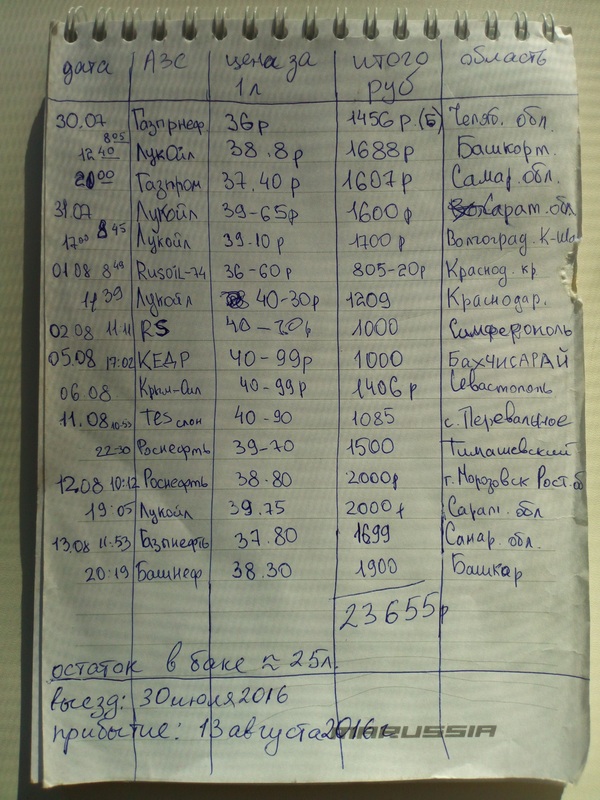 дата АЗС цена за 1 л итого руб область
30.07 8 05 Газпрнеф. 36 р 1456 р. (Б) Челяб. обл.
12 40 Лукойл 38.8 р 1688 р Башкорт.
20 00 Газпром 37.40 р 1607 р Самар. обл.
31.07 8 45 Лукойл 39-65 р 1600 р Сарат. обл
17 00 Лукойл 39-10 р 1700 р Волгоград.
01 08 8 49 RusOIL-74 36-60 р 805-20 р Краснод. кр
11 39 Лукойл 40-30 р 1209 Краснодар.
02 08 11 11 RS 1000 Симферополь
05.08 17:02 КЕДР 40-99 р 1000 БАХЧИСАРАЙ
06.08 Крым-Ойл 40-99 р 1406 р Севастополь
11.08 10:53 TES слон 40-90 1085 с. Перевальное
22-30 Роснефть 39-70 1500 Тимашевский
12.08 10:12 Роснефть 38.80 2000 р г. Морозовск Рост. об
19:05 Лукойл 39.75 2000 р Сарат. обл
13.08 11.53 Газпнефть 37.80 1699 Самар. обл.
20:19 Башнеф 38.30 1900 Башкар
23655 р
остаток в баке ≈ 25 л.
выезд: 30 июля 2016
прибытие: 13 августа 2016 г
MARUSSIA